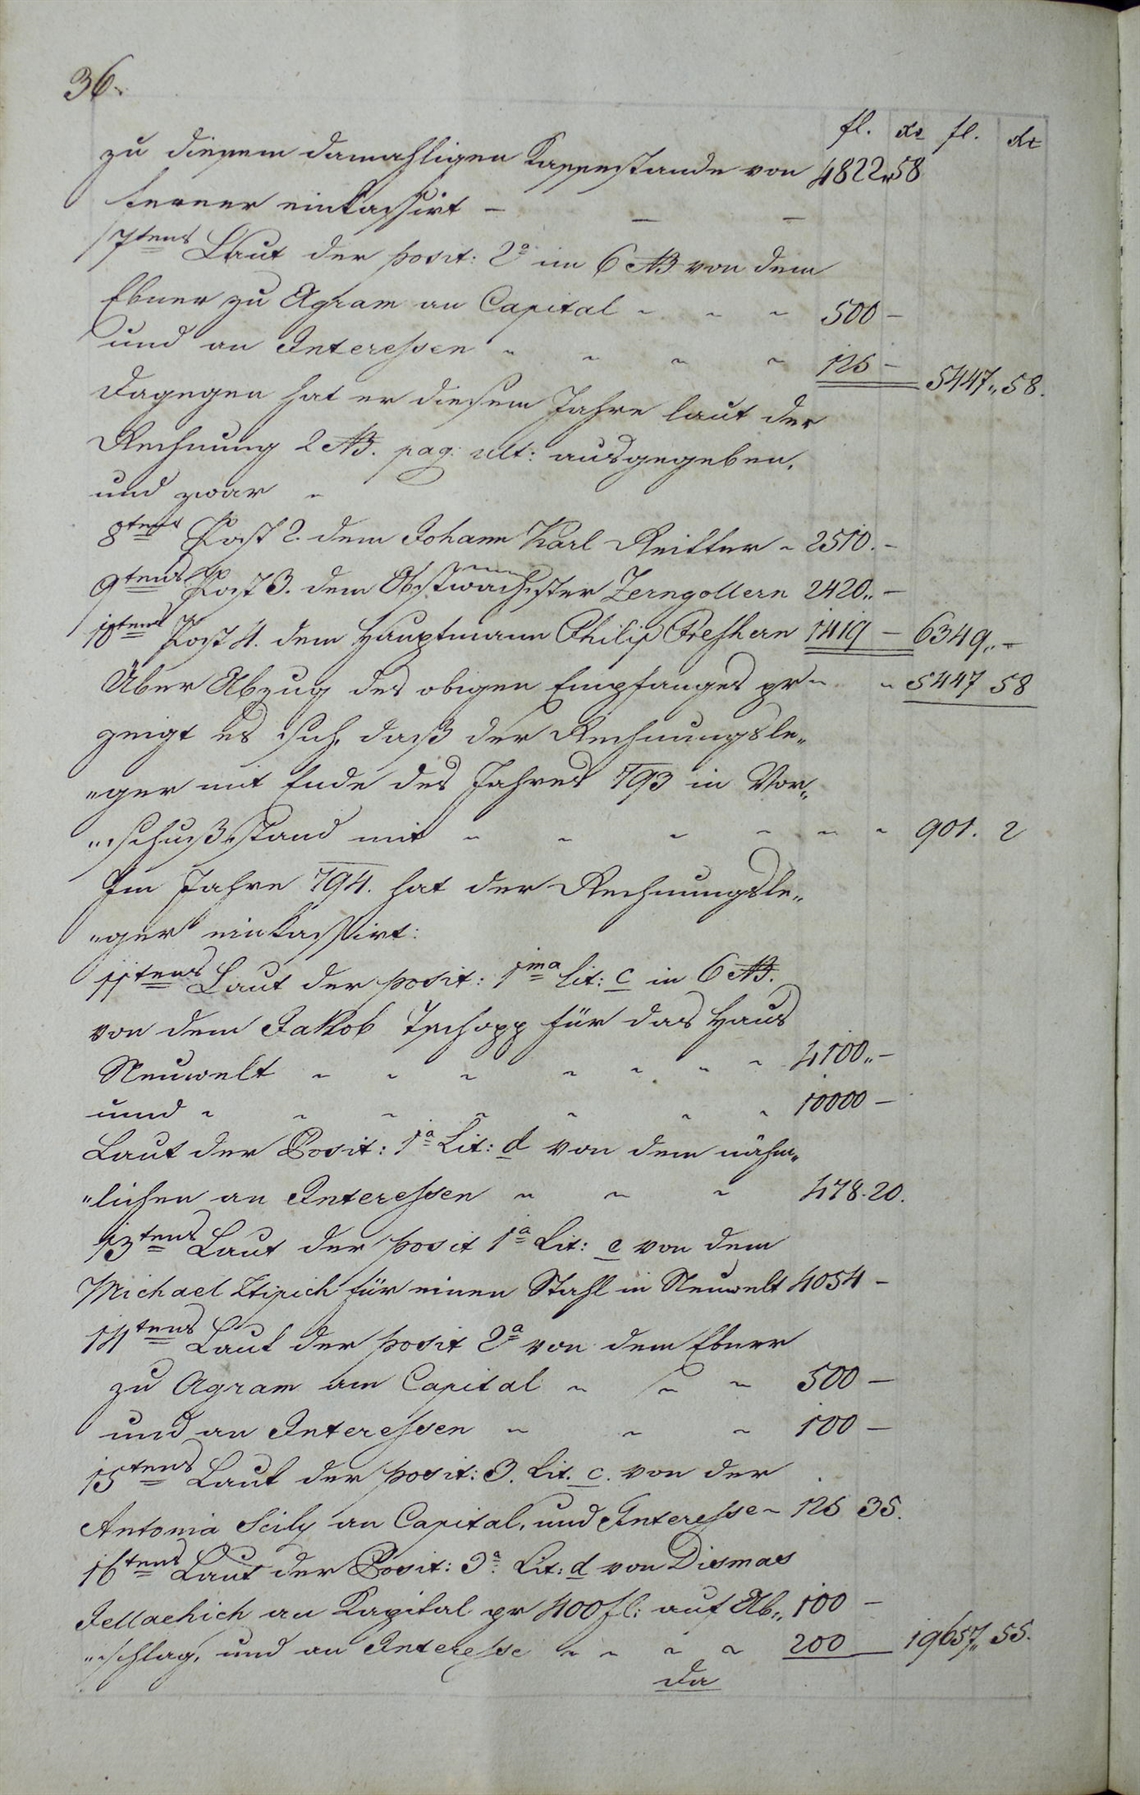 36.
fl. xr fl. xr
zu diesem damahligen Kassestande von 4822„58
ferner einkassirt – – –
7tens Laut der posit: 2a im 6 AB von dem
Ebner zu Agram an Capital „ „ „ 500 –
und an Interessen „ „ „ „ 125 – 5447„58.
Dagegen hat er diesem Jahre laut der
Rechnung 2 AB. pag: ult: ausgegeben,
und zwar „
8tens Post 2. dem Johann Karl Reitter „ 2510. –
9tens Post 3. dem Obstwachster Zerngollern 2420„ –
10tens Post 4. dem Hauptmann Philip Preshern 1419 – 6349„ –
Über Abzug des obigen Empfanges pr „ „ 5447 58
zeigt es sich, daß der Rechnungsle„
„ger mit Ende des Jahres 793 in Vor„
„schußstand mit „ „ „ „ „ „ 901. 2
Im Jahre 794. hat der Rechnungsle„
„ger einkassirt:
11tens Laut der posit: 1ma lit: c in 6 AB.
von dem Jakob Tschopp für das Haus
Neuwelt „ „ „ „ „ „ „ 4100„ –
und „ „ „ „ „ „ „ 10000 –
Laut der Posit: 1a Lit: d von dem nähm„
„lichen an Interessen „ „ „ 478. 20.
13tens Laut der posit 1a Lit: e von dem
Michael Stipich für einen Stahl in Neuwelt 4054 –
14tens Laut der posit 2a von dem Ebner
zu Agram am Capital „ „ „ 500 –
und an Interessen „ „ „ 100 –
15tens Laut der posit: 3. Lit. c. von der
Antonia Scily an Capital, und Interesse „ 125 35.
16tens Laut der Posit: 3a Lit: d von Dismas
Jellachich an Kapital pr 400 fl: auf Ab„ 100 –
„schlag, und an Interesse „ „ „ „ 200 19657„ 55.
da